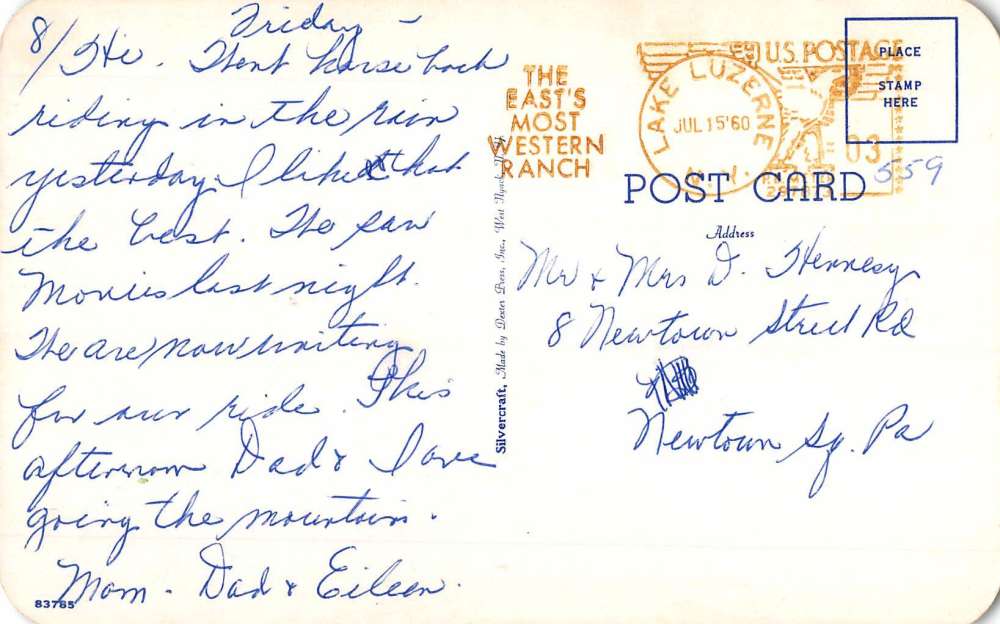 Friday -
8/ Hi. Went horse back
riding in the rain
yesterday. I liked that
the best. We saw
Movies last night.
We are now waiting
for our ride. This
afternoon Dad & I are
going the mountain.
Mom - Dad & Eileen.
83785
Silvercraft, Made by Dexter Press, Inc., West Nyack, N.Y.
THE
EAST'S
MOST
WESTERN
RANCH
LAKE LUZERNE
JUL 15 '60
N.Y.
U.S. POSTAGE
03
PLACE
STAMP
HERE
559
POST CARD
Address
Mr & Mrs D. Hennesy
8 Newtown Street Rd
Newtown Sq. Pa